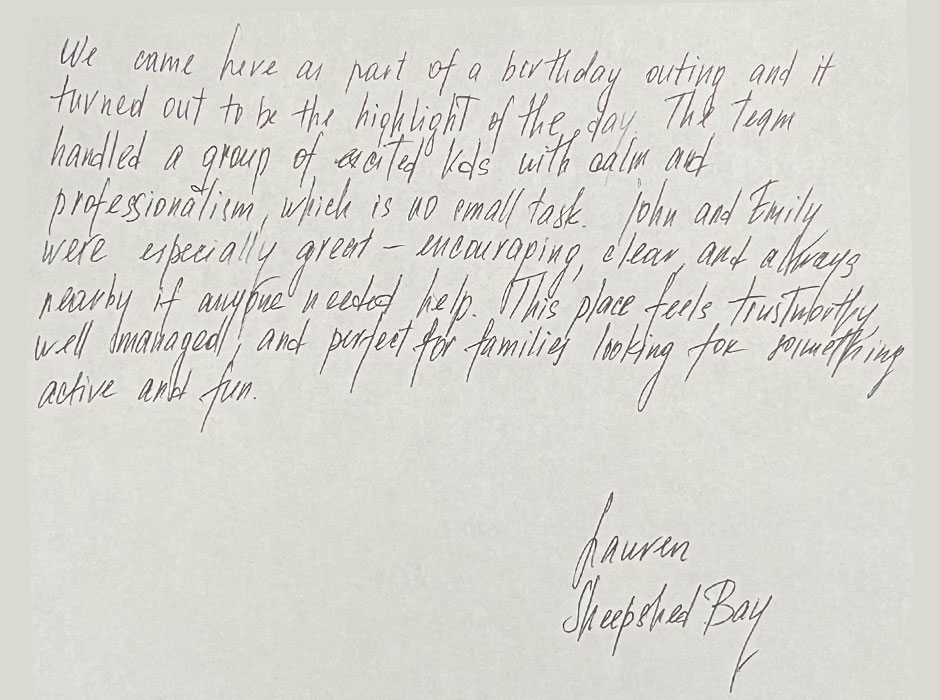 We came here as part of a birthday outing and it
turned out to be the highlight of the day. The team
handled a group of excited kids with calm and
professionalism, which is no small task. John and Emily
were especially great – encouraging, clear, and always
nearby if anyone needed help. This place feels trustworthy,
well managed, and perfect for families looking for something
active and fun.
Lauren
Sheepshed Bay